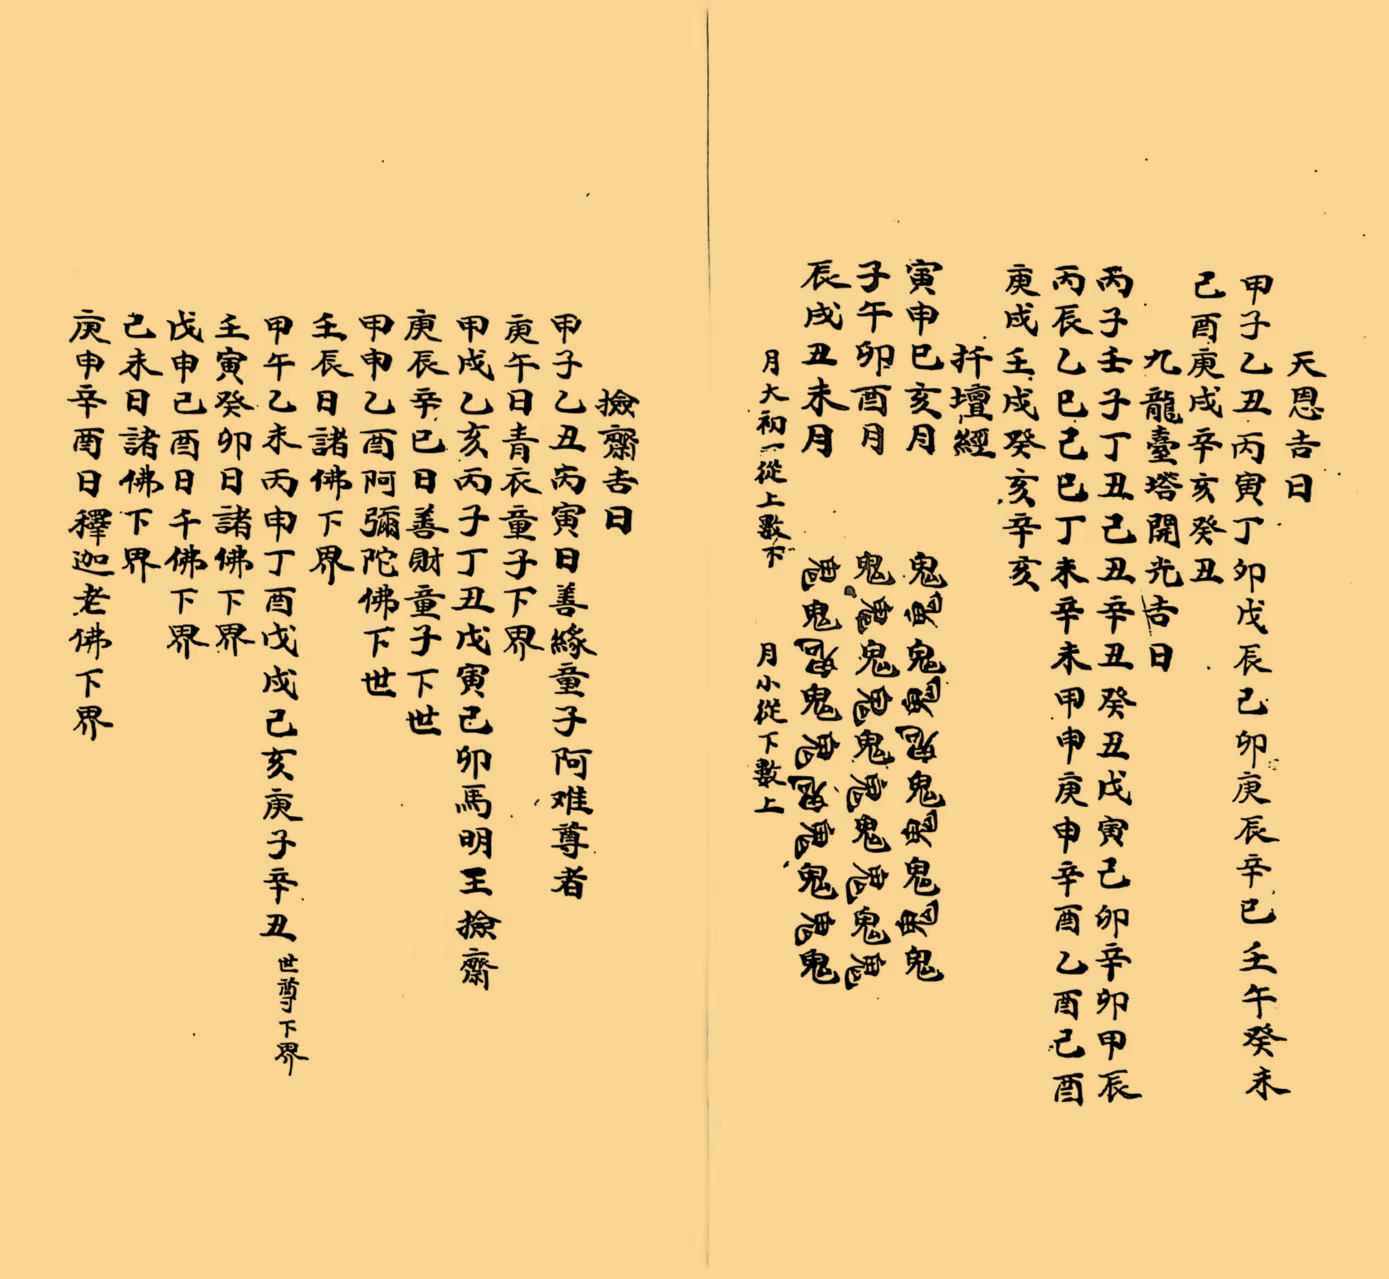 天恩吉日
甲子乙丑丙寅丁卯戊辰己卯庚辰辛巳壬午癸未
己酉庚戌辛亥癸丑
九龍臺塔開光吉日
丙子壬子丁丑己丑辛丑癸丑戊寅己卯辛卯甲辰
丙辰乙巳己巳丁未辛未甲申庚申辛酉乙酉己酉
庚戌壬戌癸亥辛亥
扦壇經
寅申巳亥月 鬼鬼鬼鬼鬼鬼鬼鬼鬼鬼
子午卯酉月 鬼鬼鬼鬼鬼鬼鬼鬼鬼鬼
辰戌丑未月 鬼鬼鬼鬼鬼鬼鬼鬼鬼鬼
月大初一從上數下 月小從下數上
撿齋吉日
甲子乙丑丙寅日善緣童子阿难尊者
庚午日青衣童子下界
甲戌乙亥丙子丁丑戊寅己卯馬明王撿齋
庚辰辛巳日善財童子下世
甲申乙酉阿彌陀佛下世
壬辰日諸佛下界
甲午乙未丙申丁酉戊戌己亥庚子辛丑世尊下界
壬寅癸卯日諸佛下界
戊申己酉日千佛下界
己未日諸佛下界
庚申辛酉日釋迦老佛下界